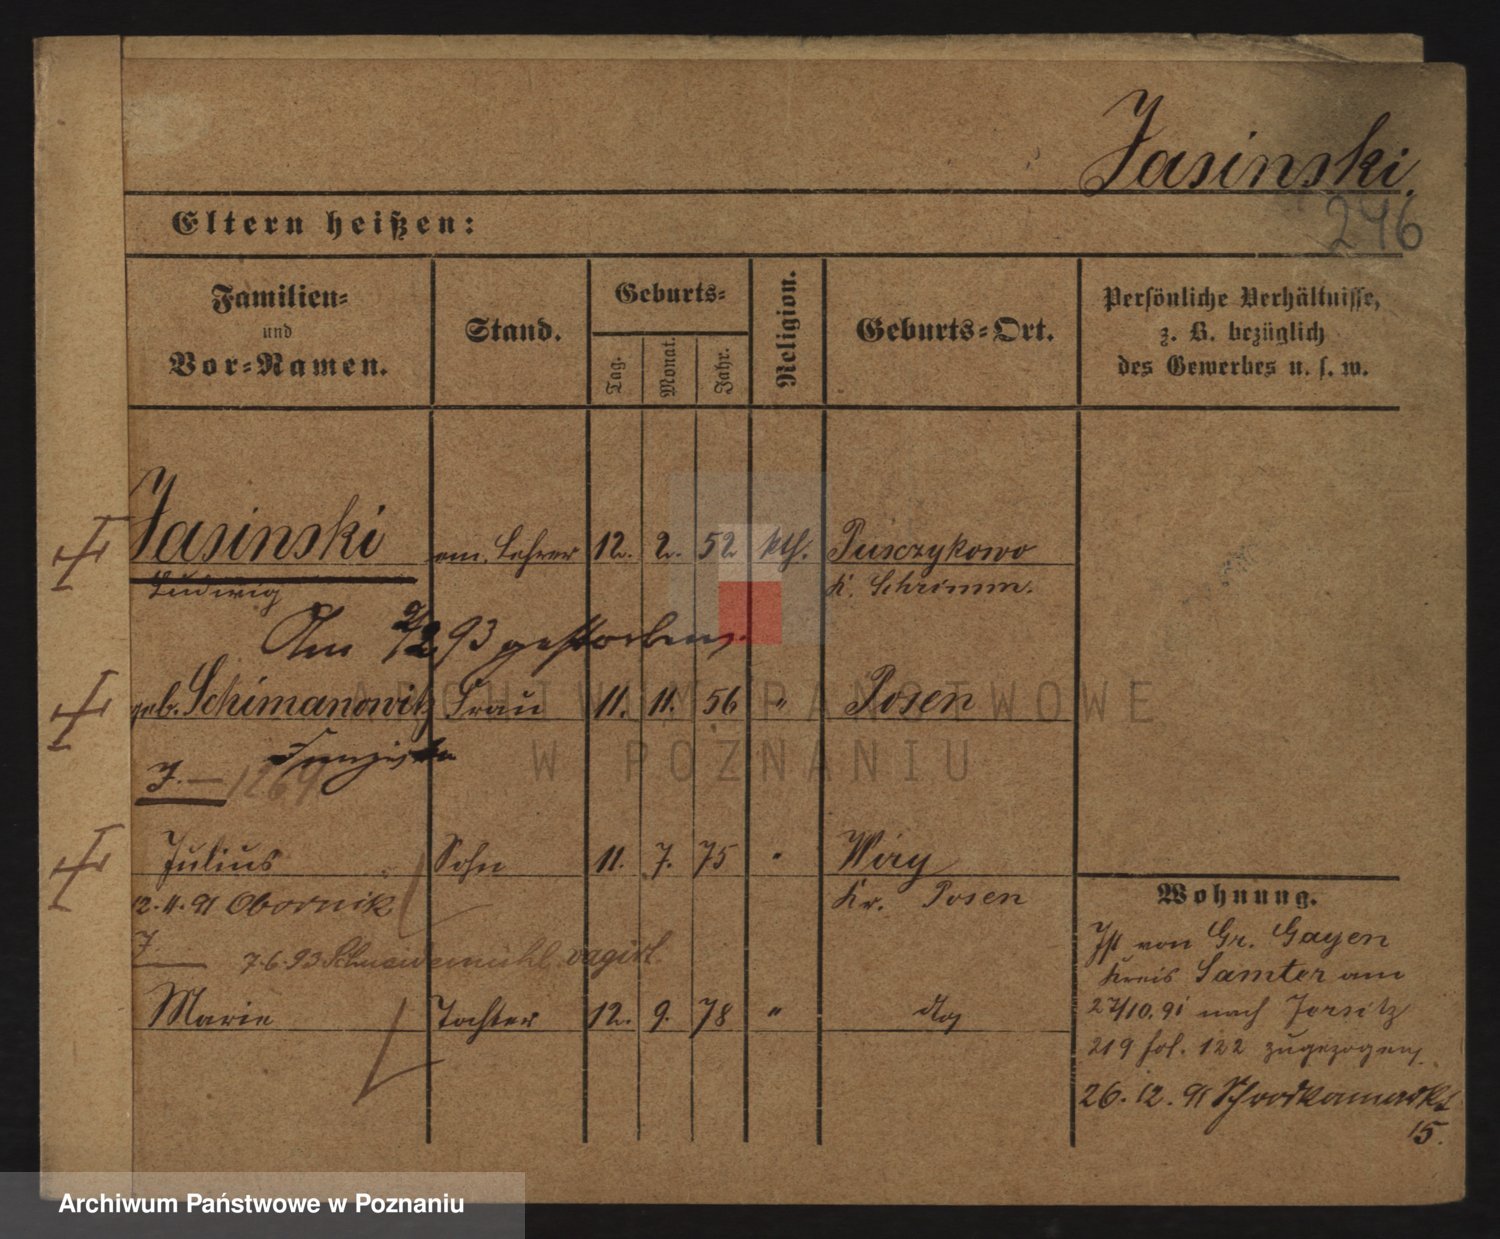 Jasinski.
246
Eltern heißen:
Familien-
und
Vor-Namen.
Stand.
Geburts-
Tag.
Monat.
Jahr.
Religion.
Geburts-Ort.
Persönliche Verhältnisse,
z. B. bezüglich
des Gewerbes u. s. w.
Jasinski em. Lehrer 12. 2. 52 kth. Pusczykowo
Ludwig K. Schrimm.
Am 9/2 93 gestorben.
geb. Schimanowitz Frau 11. 11. 56 " Posen
Franziska
J. — 1269
Julius Sohn 11. 7. 75 " Wiry
12.11.91 Obornik Kr. Posen
J —
7.6.93 Schneidemühl vagirt.
Marie Tochter 12. 9. 78 " dto
Wohnung.
Ist von Gr. Gayen
Kreis Samter am
27/10.91 nach Jersitz
219 fol. 122 zugezogen
26.12.91 Schrodkamarkt
15.
ARCHIWUM PAŃSTWOWE
W POZNANIU
Archiwum Państwowe w Poznaniu